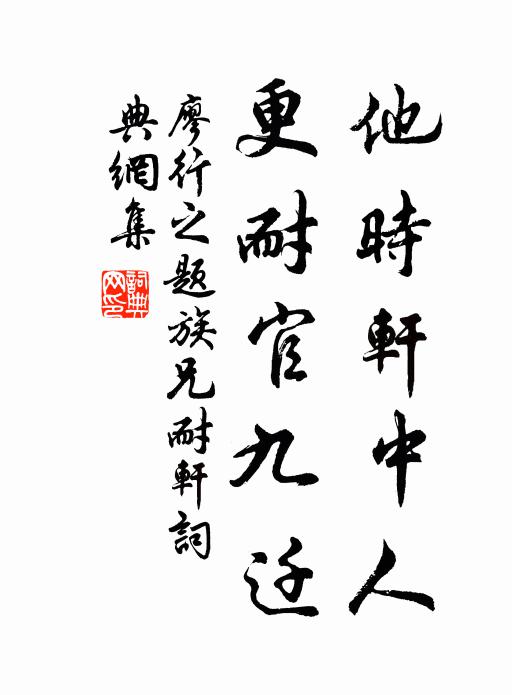 他時軒中人
更耐官九迁
廖行之题族兄耐軒詞
典網集
詞典网印